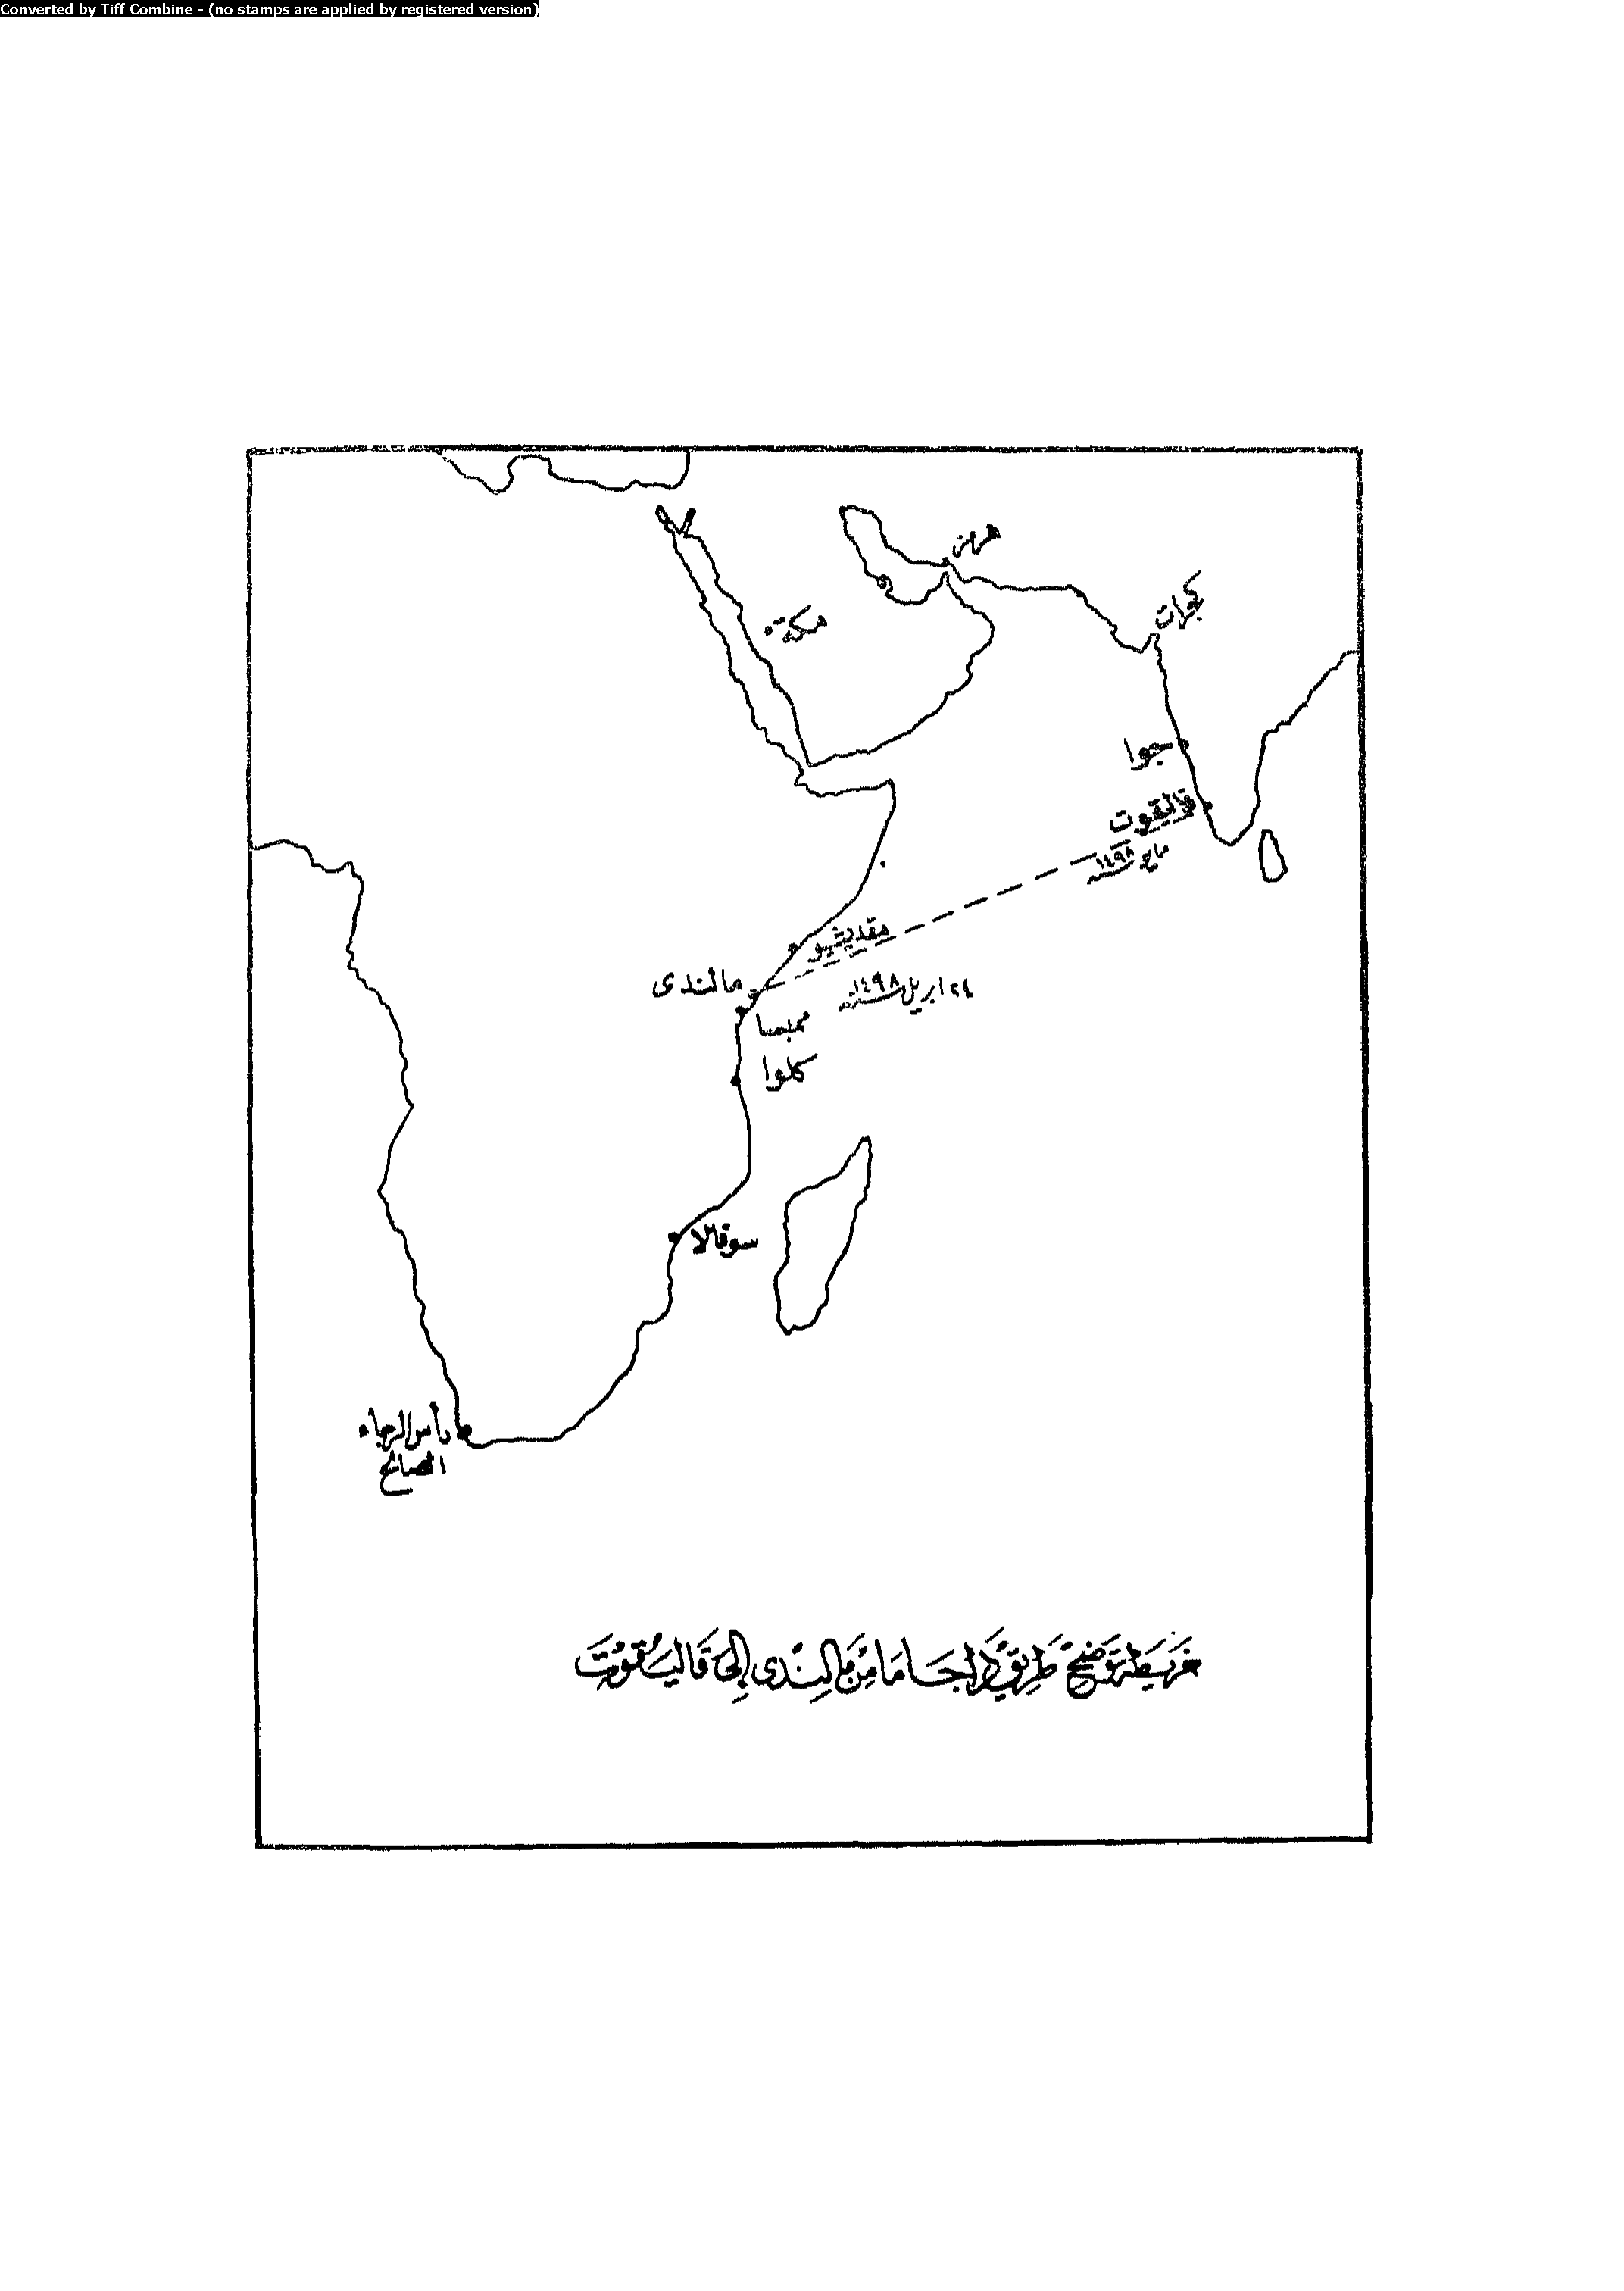 Converted by Tiff Combine - (no stamps are applied by registered version)
هرمز
كجرات
مكة
جوا
قاليقوت
مايو سنة ١٤٩٨
مقديشيو
مالندى
٢٤ ابريل سنة ١٤٩٨
ممبسا
كلوا
سوفالا
رأس الرجاء
الصالح
خريطة توضح طريق دا جاما من مالندى إلى قاليقوت